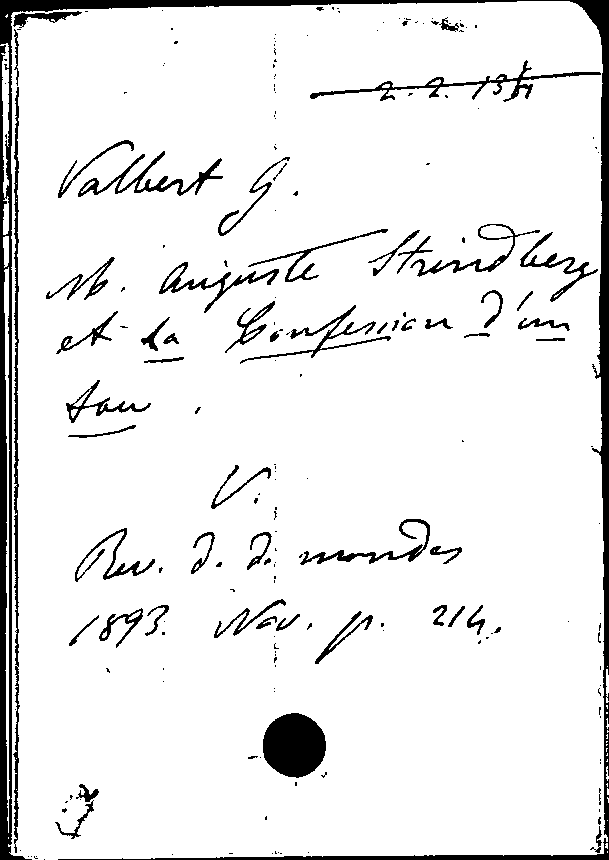 Valbert G.
M. Auguste Strindberg
et la Confession d'un
fou.
V.
Rev. d. d. mondes
1893. Nov. p. 214.